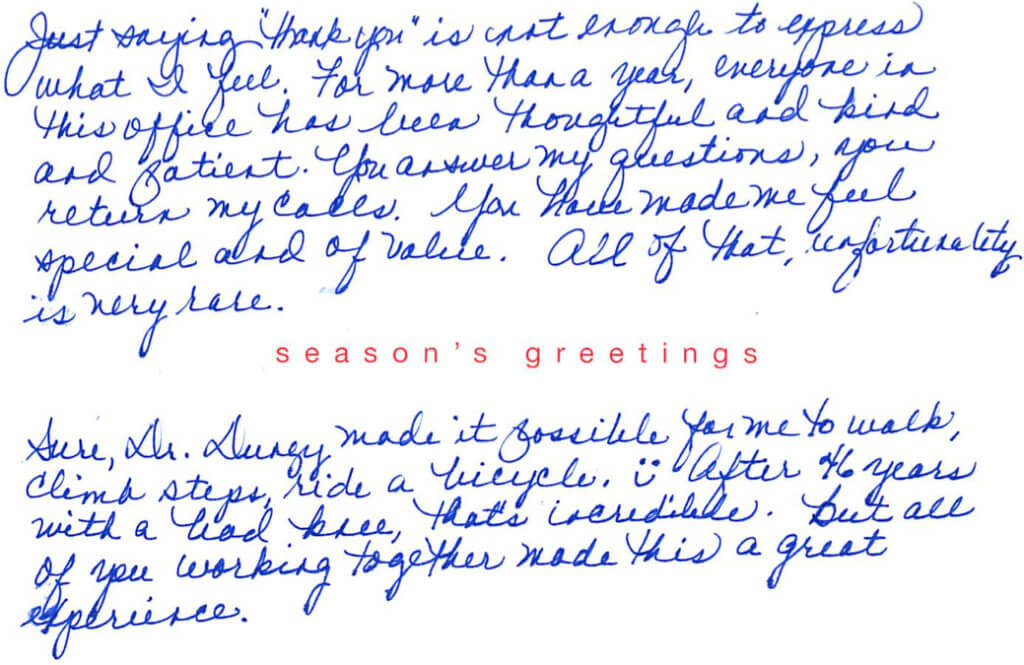 Just saying "thank you" is not enough to express
what I feel. For more than a year, everyone in
this office has been thoughtful and kind
and patient. You answer my questions, you
return my calls. You have made me feel
special and of value. All of that, unfortunatlity
is very rare.
season's greetings
Sure, Dr. made it possible for me to walk,
climb steps, ride a bicycle. :) After 46 years
with a bad knee, that's incredible. But all
of you working together made this a great
experience.